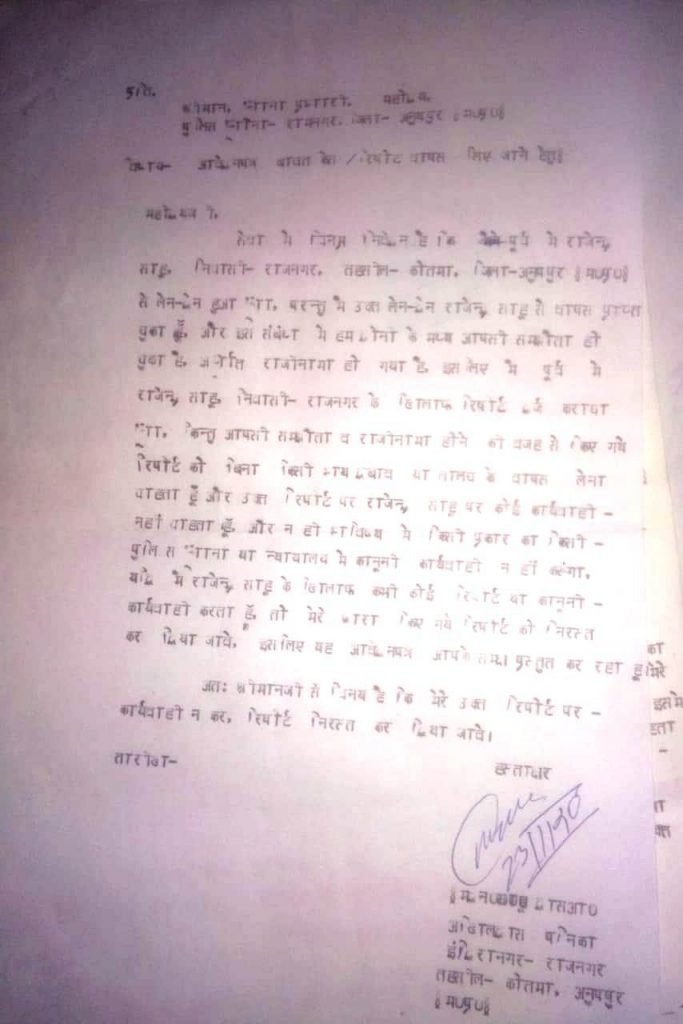 प्रति,
श्रीमान, थाना प्रभारी, महोदय,
पुलिस थाना- राजनगर, जिला- अनूपपुर §म0प्र0§
विषय- आवेदनपत्र बावत केश/रिपोर्ट वापस लिए जाने हेतु§
महोदय जी,
सेवा में विनम्र निवेदन है कि पूर्व में राजेन्द्र
साहू, निवासी- राजनगर, तहसील- कोतमा, जिला-अनूपपुर §म0प्र0§
से लेन-देन हुआ था, परन्तु मैं उक्त लेन-देन राजेन्द्र साहू से वापस प्राप्त
चुका हूँ, और इस संबंध में हम दोनों के मध्य आपसी समझौता हो
चुका है, अर्थात राजीनामा हो गया है, इसलिए मैं पूर्व में
राजेन्द्र साहू, निवासी- राजनगर के खिलाफ रिपोर्ट दर्ज कराया
था, किन्तु आपसी समझौता व राजीनामा होने की वजह से किए गये
रिपोर्ट को बिना किसी भय दबाव या लालच के वापस लेना
चाहता हूँ और उक्त रिपोर्ट पर राजेन्द्र साहू पर कोई कार्यवाही -
नहीं चाहता हूँ, और न ही भविष्य में किसी प्रकार का किसी -
पुलिस थाना या न्यायालय में कानूनी कार्यवाही न हीं करूंगा,
यदि मैं राजेन्द्र साहू के खिलाफ कभी कोई रिपोर्ट या कानूनी -
कार्यवाही करता हूँ, तो मेरे द्वारा किए गये रिपोर्ट को निरस्त
कर दिया जावे, इसलिए यह आवेदनपत्र आपके समक्ष प्रस्तुत कर रहा हूँ
अतः श्रीमानजी से विनय है कि मेरे उक्त रिपोर्ट पर -
कार्यवाही न कर, रिपोर्ट निरस्त कर दिया जावे।
तारीख-
हस्ताक्षर
23/11/20
आ0
पनिका
इंदिरानगर- राजनगर
तहसील- कोतमा, अनूपपुर
§म0प्र0§
का
इसमे